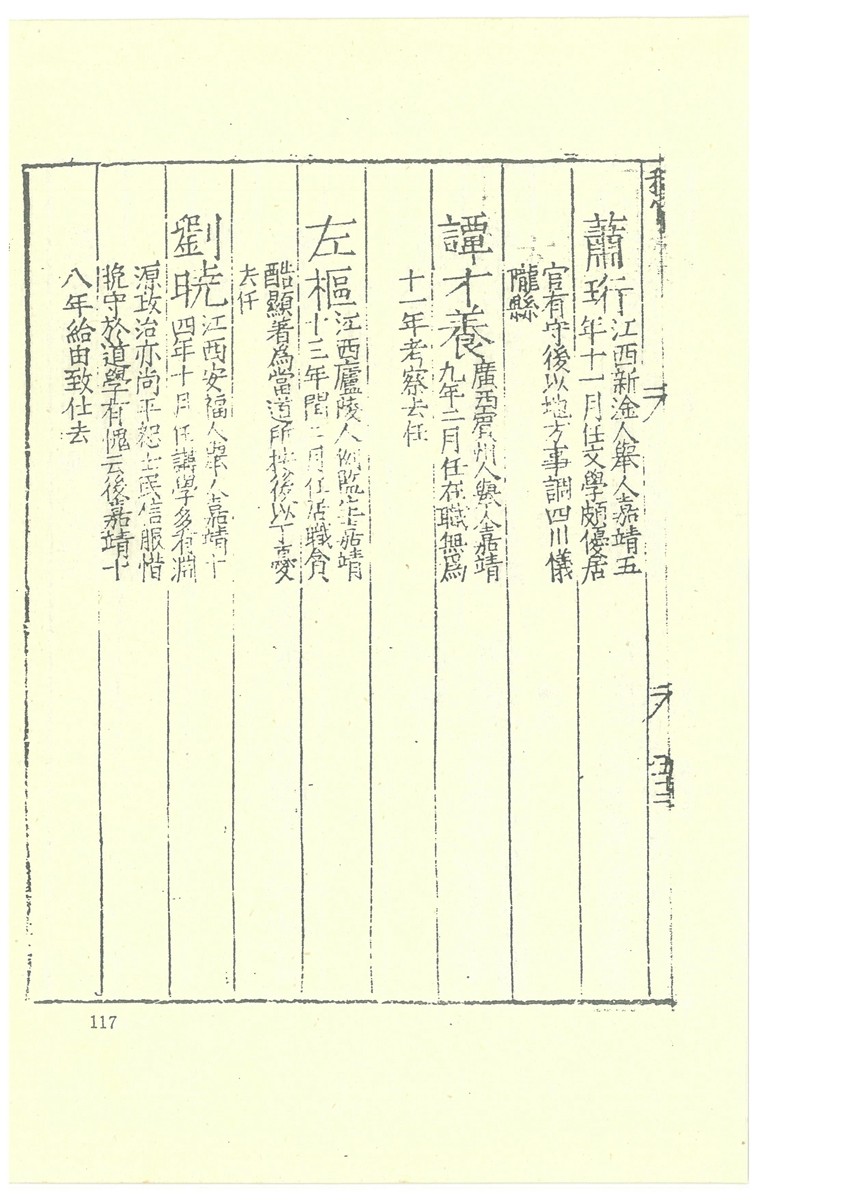 蕭珩
江西新淦人舉人嘉靖五
年十一月任文學頗優居
官有守後以地方事調四川儀
隴縣
譚才養
廣西賔州人舉人嘉靖
九年二月任在職無爲
十一年考察去任
左樞
江西廬陵人例監生嘉靖
十三年閏二月任居職貪
酷顯著爲當道所 後以丁憂
去任
劉曉
江西安福人舉人嘉靖十
四年十月任講學多有淵
源政治亦尚平恕士民信服惜
晚守於道學有愧云後嘉靖十
八年給由致仕去
117